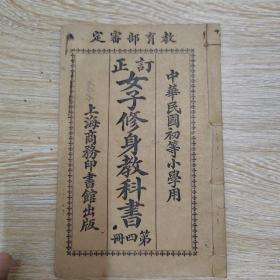 教育部審定
中華民國初等小學用
訂正
女子修身教科書
第四冊
上海商務印書館出版